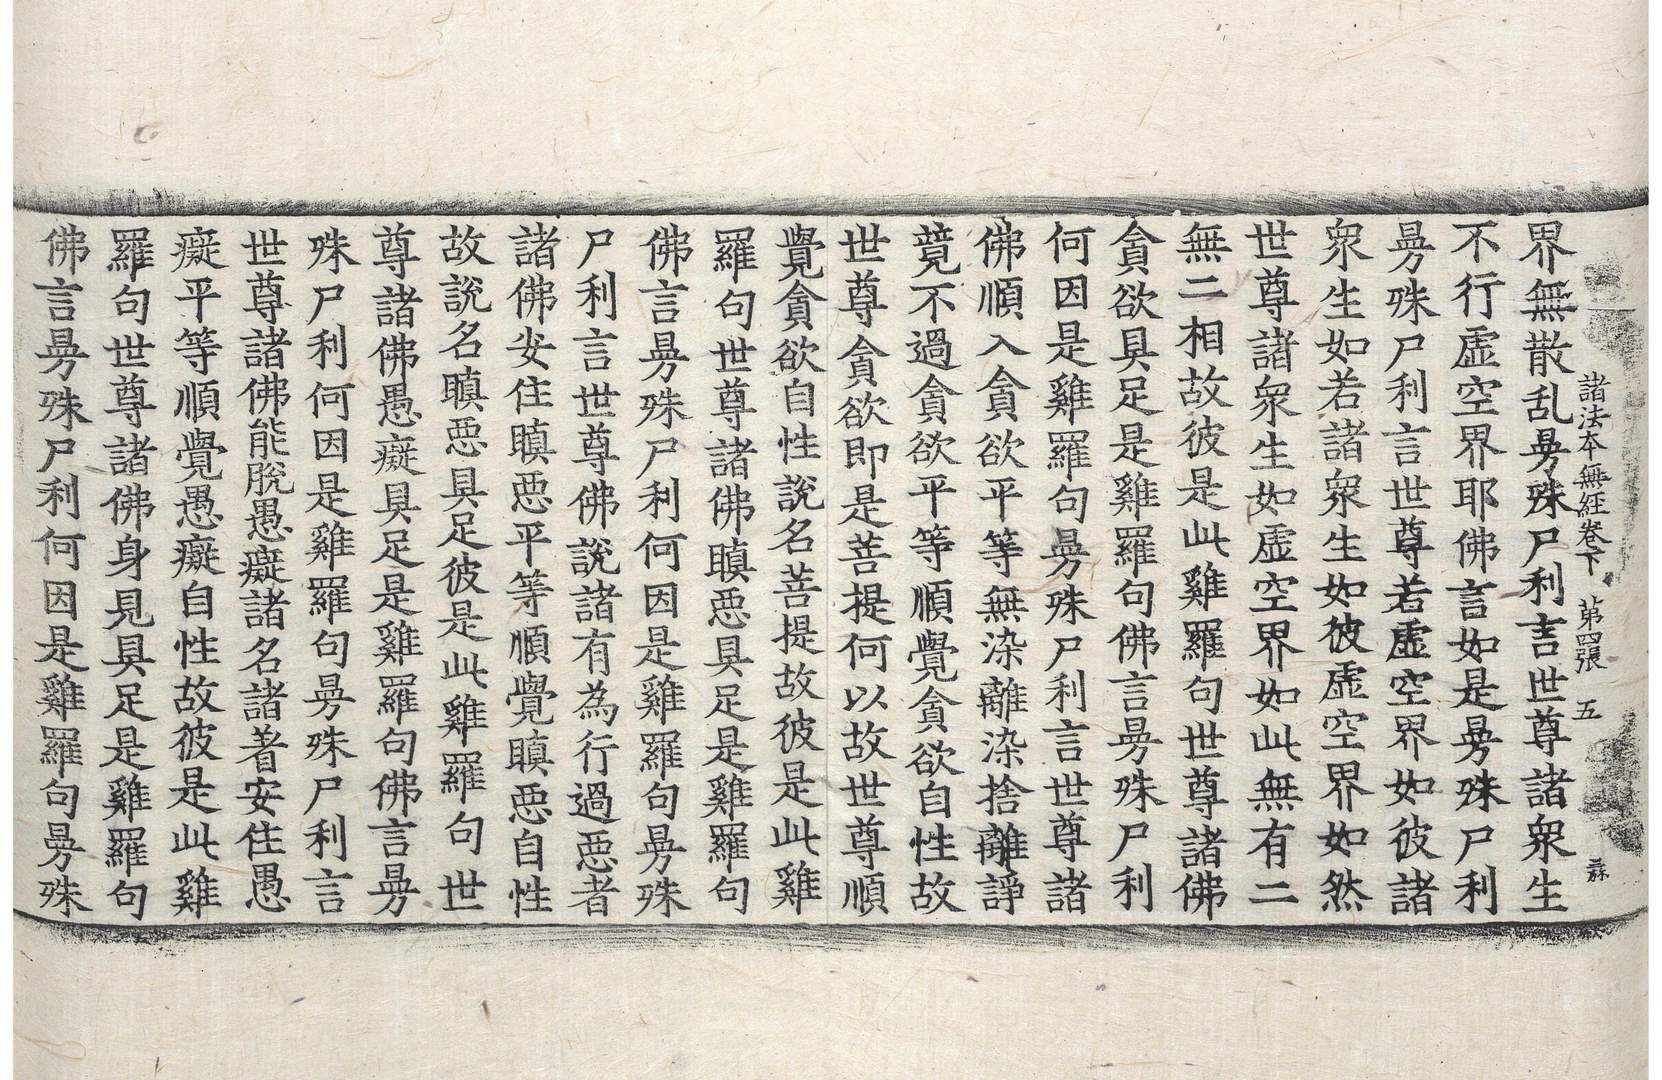 諸法本無經卷下 第四張 五
界無散乱曼殊尸利言世尊諸衆生
不行虛空界耶佛言如是曼殊尸利
曼殊尸利言世尊若虛空界如彼諸
衆生如若諸衆生如彼虛空界如然
世尊諸衆生如虛空界如此無有二
無二相故彼是此雞羅句世尊諸佛
貪欲具足是雞羅句佛言曼殊尸利
何因是雞羅句曼殊尸利言世尊諸
佛順入貪欲平等無染離染捨離諍
竟不過貪欲平等順覺貪欲自性故
世尊貪欲即是菩提何以故世尊順
覺貪欲自性說名菩提故彼是此雞
羅句世尊諸佛瞋惡具足是雞羅句
佛言曼殊尸利何因是雞羅句曼殊
尸利言世尊佛說諸有為行過惡者
諸佛安住瞋惡平等順覺瞋惡自性
故說名瞋惡具足彼是此雞羅句世
尊諸佛愚癡具足是雞羅句佛言曼
殊尸利何因是雞羅句曼殊尸利言
世尊諸佛能脫愚癡諸名諸著安住愚
癡平等順覺愚癡自性故彼是此雞
羅句世尊諸佛身見具足是雞羅句
佛言曼殊尸利何因是雞羅句曼殊